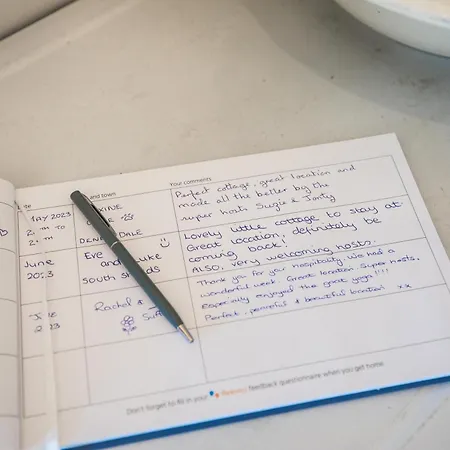 and town
Your comments
MAY 2023
2
TH TO
2
TH
DALE
Perfect cottage, great location and
made all the better by the
super hosts Suzie & Jonty
June
2023
Eve
and Luke
South
Lovely little cottage to stay at.
Great location, definitely be
coming back!
Also, very welcoming hosts.
Rachel &
Thank you for your hospitality. We had a
wonderful week. Great location. Super hosts.
Especially enjoyed the goat yoga!!!!
Perfect, peaceful & beautiful xx
Don't forget to fill in your
feedback questionnaire when you get home.